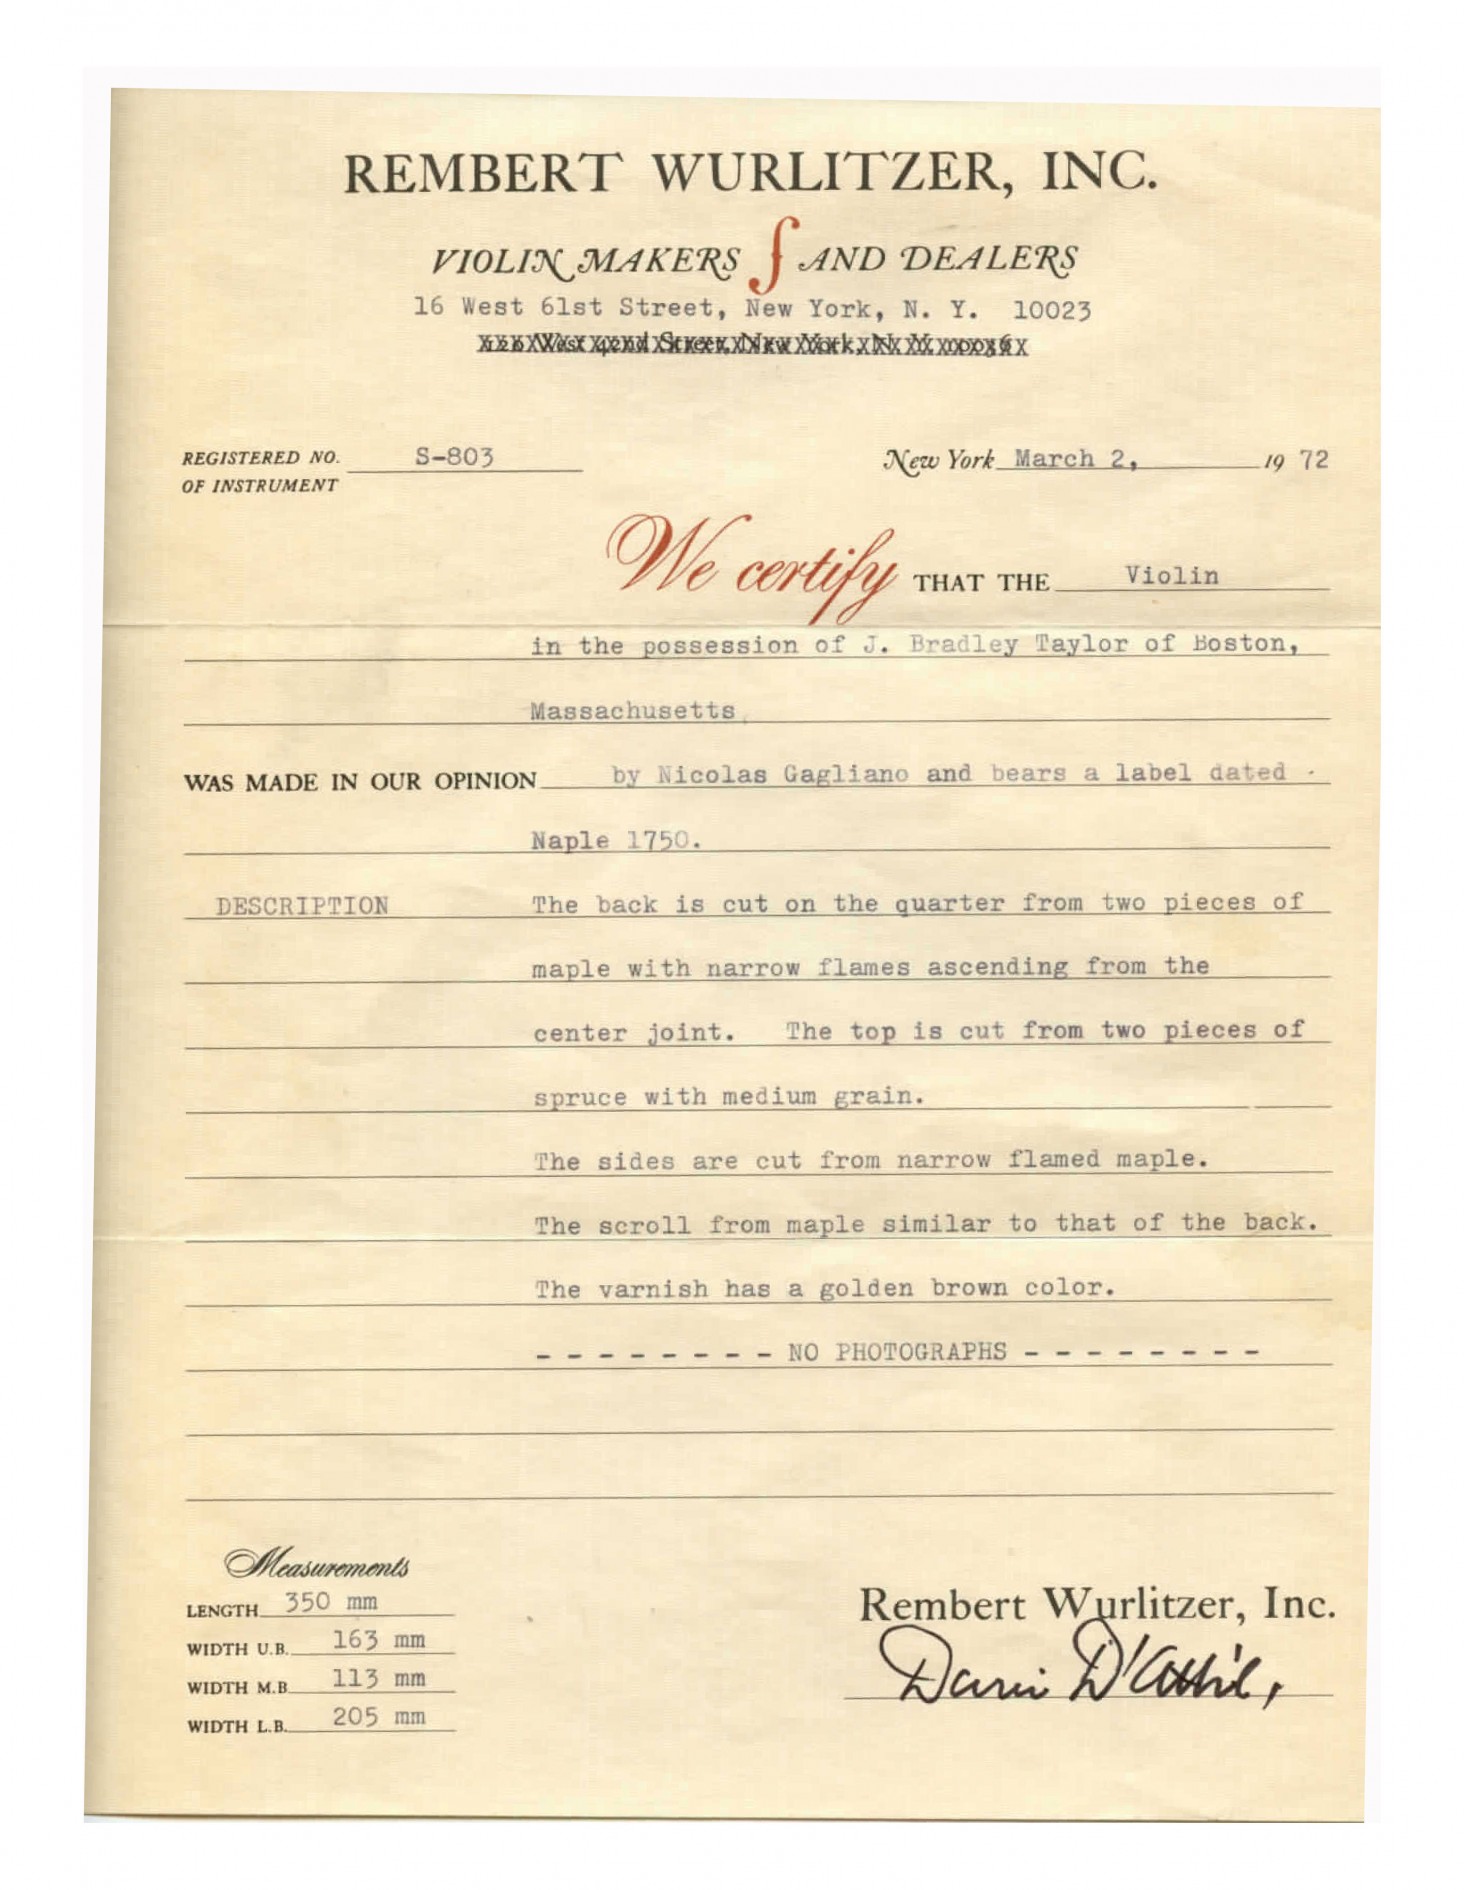 REMBERT WURLITZER, INC.
VIOLIN MAKERS AND DEALERS
16 West 61st Street, New York, N. Y. 10023
120 West 42nd Street, New York, N. Y. 10036
REGISTERED NO. S-803
OF INSTRUMENT
New York March 2, 19 72
We certify THAT THE Violin
in the possession of J. Bradley Taylor of Boston,
Massachusetts
WAS MADE IN OUR OPINION by Nicolas Gagliano and bears a label dated
Naple 1750.
DESCRIPTION The back is cut on the quarter from two pieces of
maple with narrow flames ascending from the
center joint. The top is cut from two pieces of
spruce with medium grain.
The sides are cut from narrow flamed maple.
The scroll from maple similar to that of the back.
The varnish has a golden brown color.
- - - - - - - - NO PHOTOGRAPHS - - - - - - - -
Measurements
LENGTH 350 mm
WIDTH U.B. 163 mm
WIDTH M.B. 113 mm
WIDTH L.B. 205 mm
Rembert Wurlitzer, Inc.
Dario D'Attili,